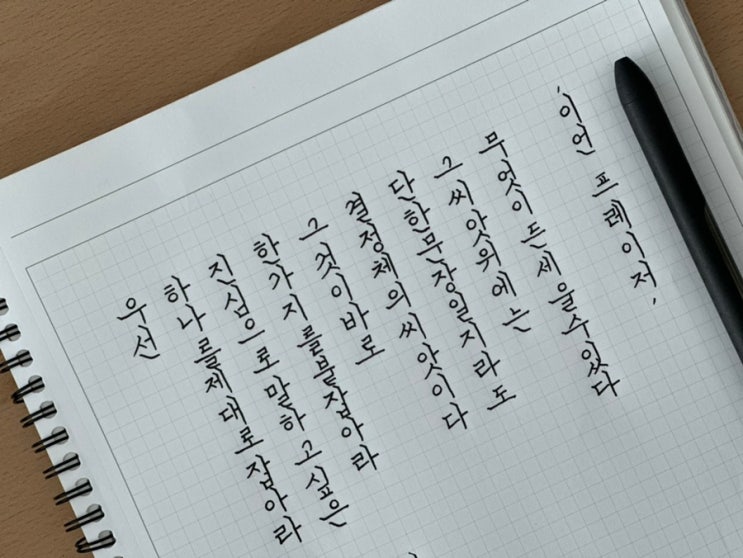 우선
하나를 제대로 잡아라
진심으로 말하고 싶은
한가지를 붙잡아라
그것이 바로
결정체의 씨앗이다
단 한문장일지라도
그 씨앗위에는
무엇이든 세울수있다
'이언 프레이저,